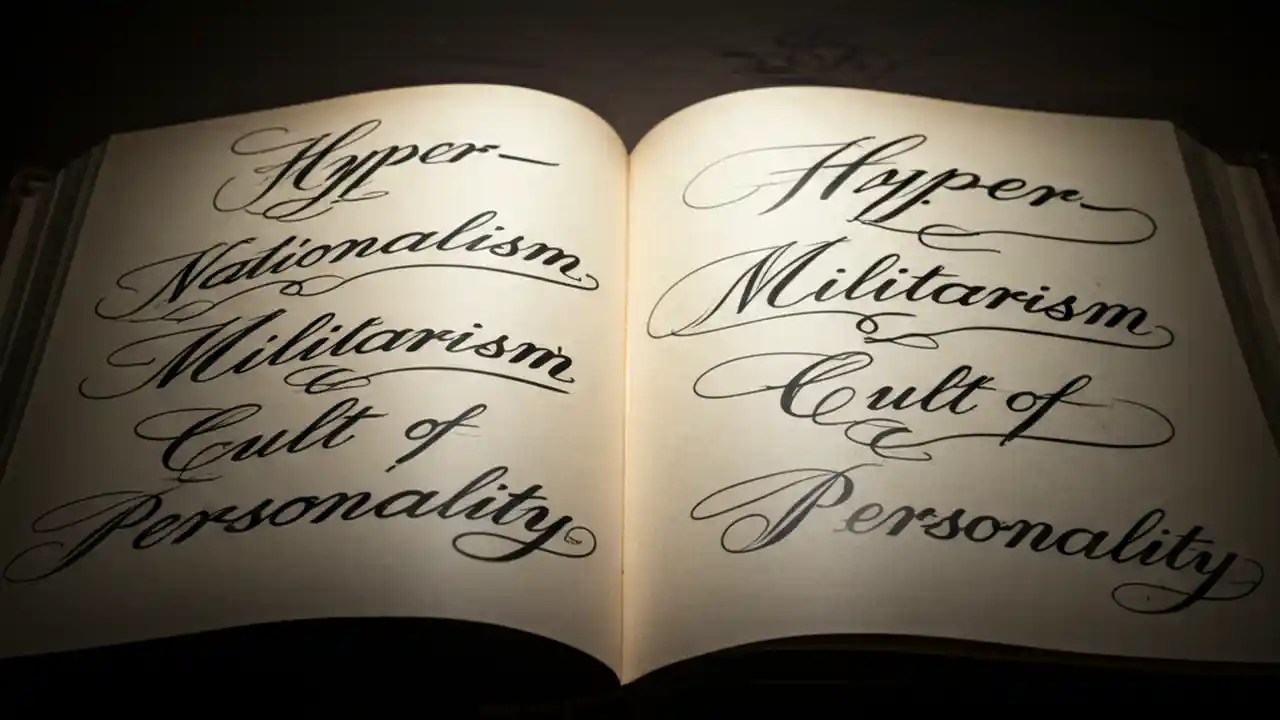 Hyper-
Nationalism
Militarism
Cult of
Personality
Hyper-
Militarism
Cult of
Personality